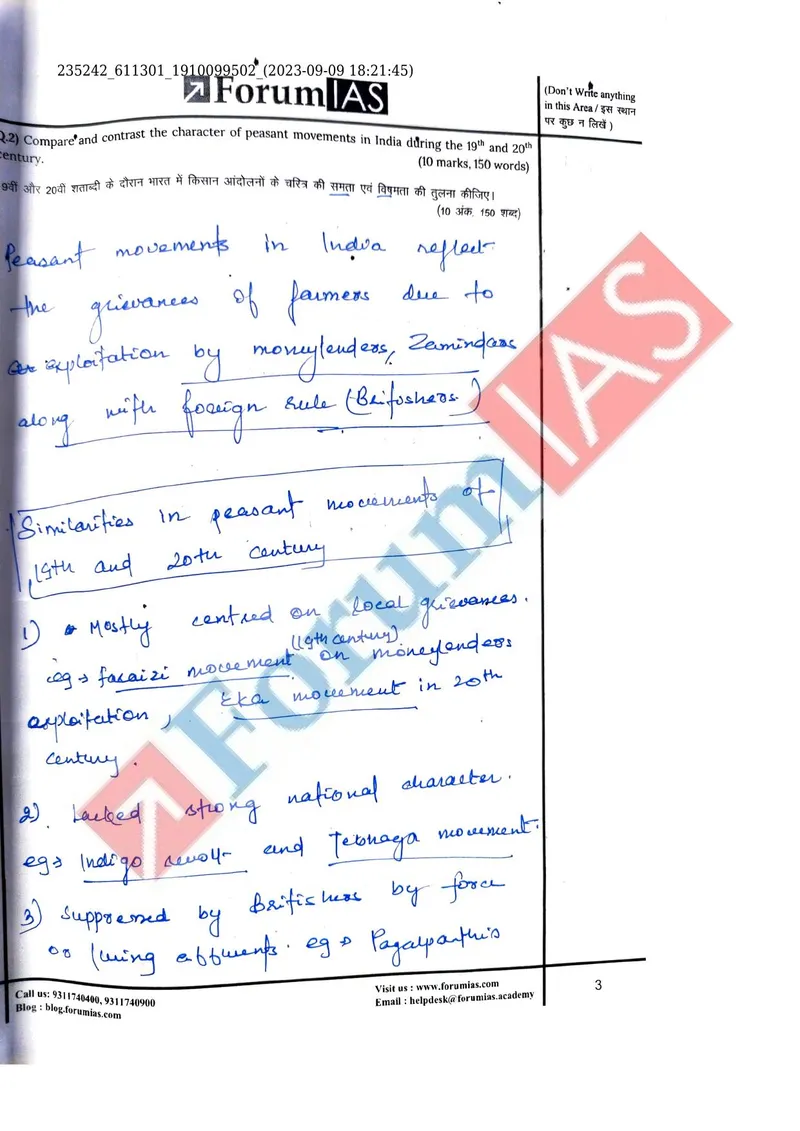 235242_611301_1910099502 (2023-09-09 18:21:45)
ForumIAS
(Don't Write anything
in this Area / इस स्थान
पर कुछ न लिखें )
Q.2) Compare and contrast the character of peasant movements in India during the 19th and 20th
century.
(10 marks, 150 words)
9वीं और 20वीं शताब्दी के दौरान भारत में किसान आंदोलनों के चरित्र की समता एवं विषमता की तुलना कीजिए।
(10 अंक, 150 शब्द)
Peasant movements in India reflect
the grievances of farmers due to
exploitation by moneylenders, Zamindars
along with foreign rule (Britishers.)
Similarities in peasant movements of
19th and 20th century
1) Mostly centred on local grievances.
(19th century).
eg → faraizi movement on moneylenders
exploitation, Eka movement in 20th
century.
2) Lacked strong national character.
eg → Indigo revolt and Tebhaga movement.
3) Suppressed by Britishers by force
or eg → Pagalpanthis
Call us: 9311740400, 9311740900
Blog : blog.forumias.com
Visit us : www.forumias.com
Email : helpdesk@forumias.academy
3
ForumIAS